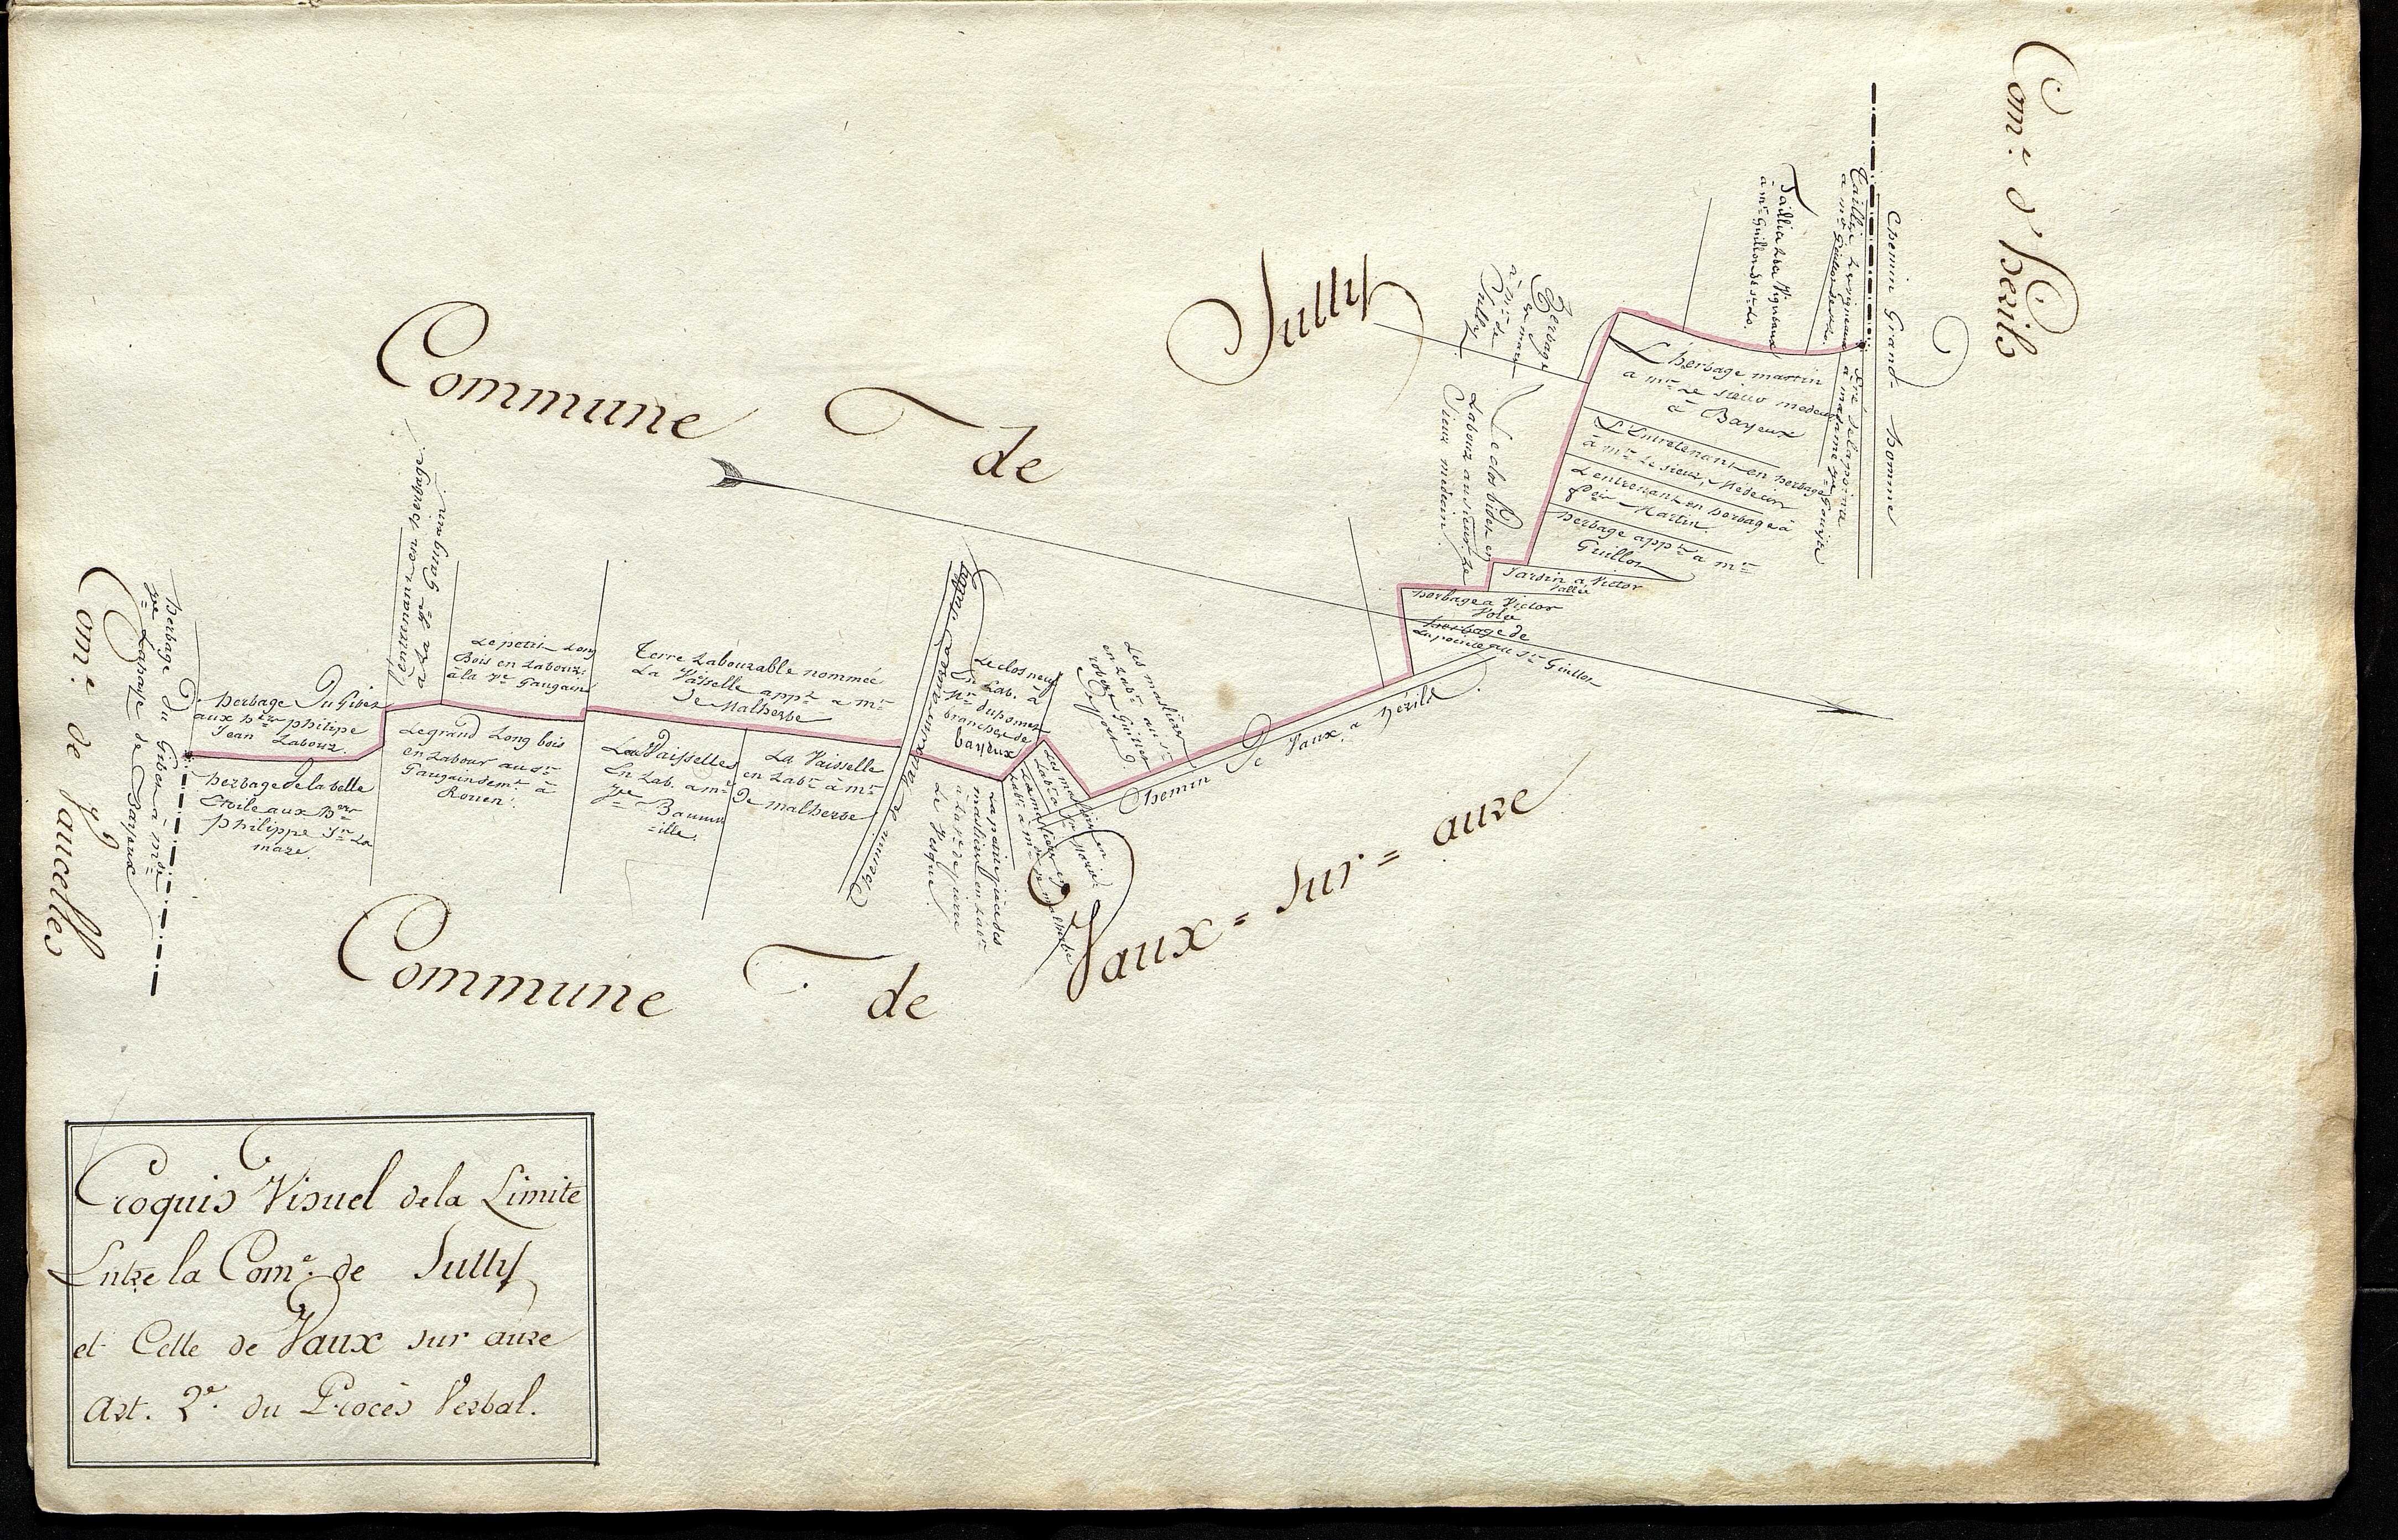 Com.e d'Herils
Chemin Grand-homme
à mr Guillot de st Lo.
Sully
Herbage
en
à mr de
Sully
Commune de
L'herbage martin
a mr Le sieur medecin
à Bayeux
L'Entretenant en herbage
à mr Le sieur, Medecin
L'entrenant en herbage à
Martin.
herbage appt a mr
Guillot
Jardin a Victor
Vallée
herbage a Victor
herbage de
La pointe au sr Guillot
Le clos bidet en
Labour au sieur Le
Sieur medecin.
l'entrenant en herbage
à La ve Gaugain.
Le petit Long
Bois en Labour
à la ve Gaugain
Terre Labourable nommée
La Vaisselle appt a mr
de Malherbe
Chemin de Vaux sur aure à Sully
Le clos neuf
En Lab. à
mr dupomet
branche de
bayeux
Les mastieres
en Labr au sr
robert Guillot
Chemin de Vaux a hérils.
Com.e de Vaucelles
herbage du Gibet à md
ve Laroque de Bayeux
herbage du Gibet
aux hers philippe
Jean Labour.
herbage de la belle
Etoile aux hers
philippe Jn La
mare.
Le grand Long bois
en Labour au sr
Gaugain demt à
Rouen.
Les Vaisselles
En Lab. a md
ve Baum
=ille.
La Vaisselle
en Labr à mr
de malherbe
mastieres en Labr
à La ve de pierre
Le Vesque.
Commune de Vaux = Sur = aure
Croquis Visuel de la Limite
Entre la Com.e de Sully
et Celle de Vaux sur aure
Art. 2e. du Procès Verbal.